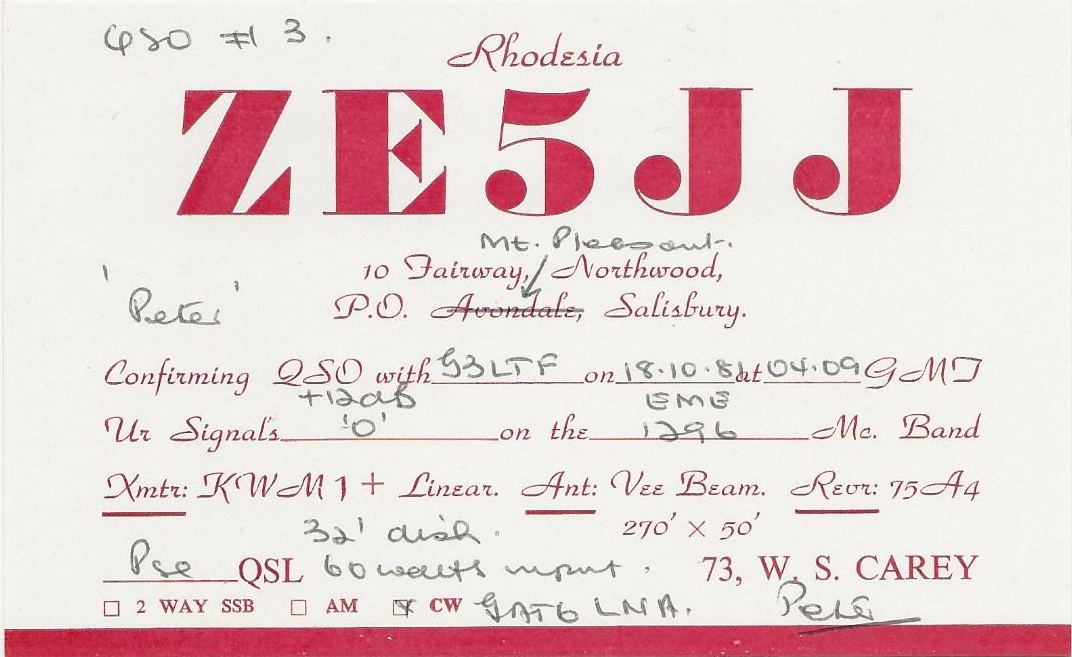 QSO # 3.
Rhodesia
ZE5JJ
Mt. Pleasant.
10 Fairway, Northwood,
'Peter'
P.O. Avondale, Salisbury.
Confirming QSO with G3LTF on 18.10.81 at 04.09 GMT
+12dB EME
Ur Signals 'O' on the 1296 Mc. Band
Xmtr: KWM1 + Linear. Ant: Vee Beam. Revr: 75A4
32' dish. 270' X 50'
Pse QSL 60 watts input. 73, W. S. CAREY
☐ 2 WAY SSB ☐ AM ☒ CW GAT6 LNA. Peter